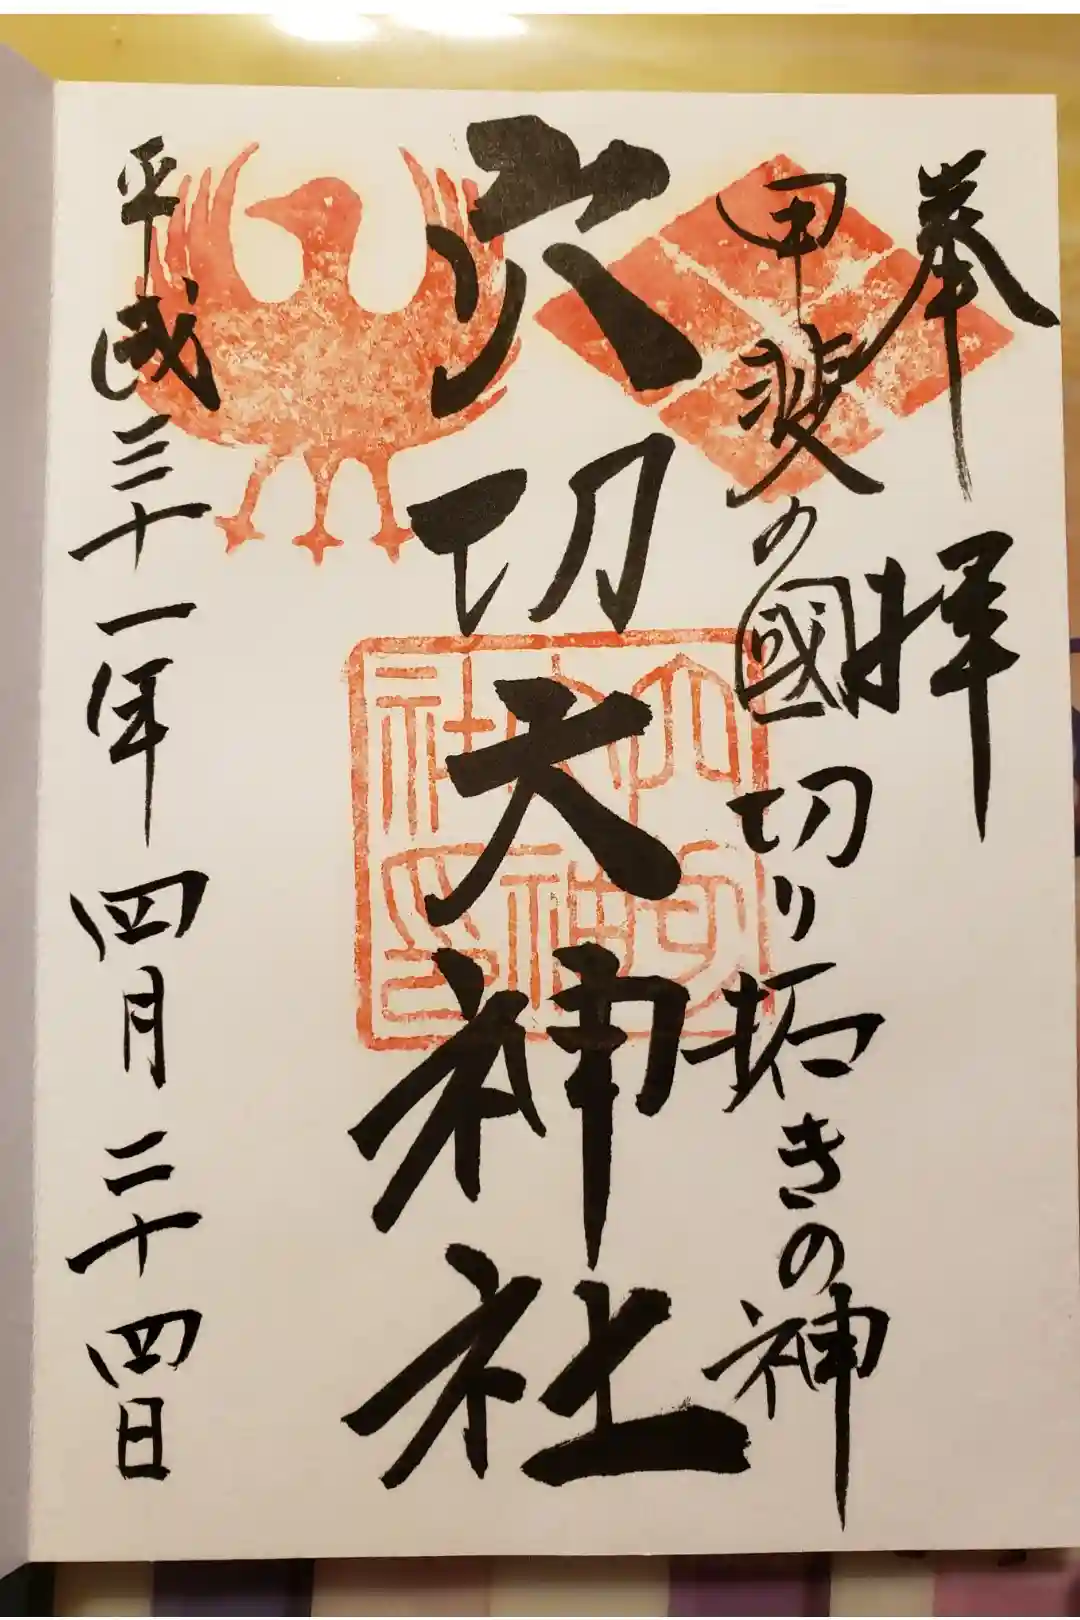 奉拝
甲斐の國切り拓きの神
穴切大神社
穴切大神社印
平成三十一年四月二十四日